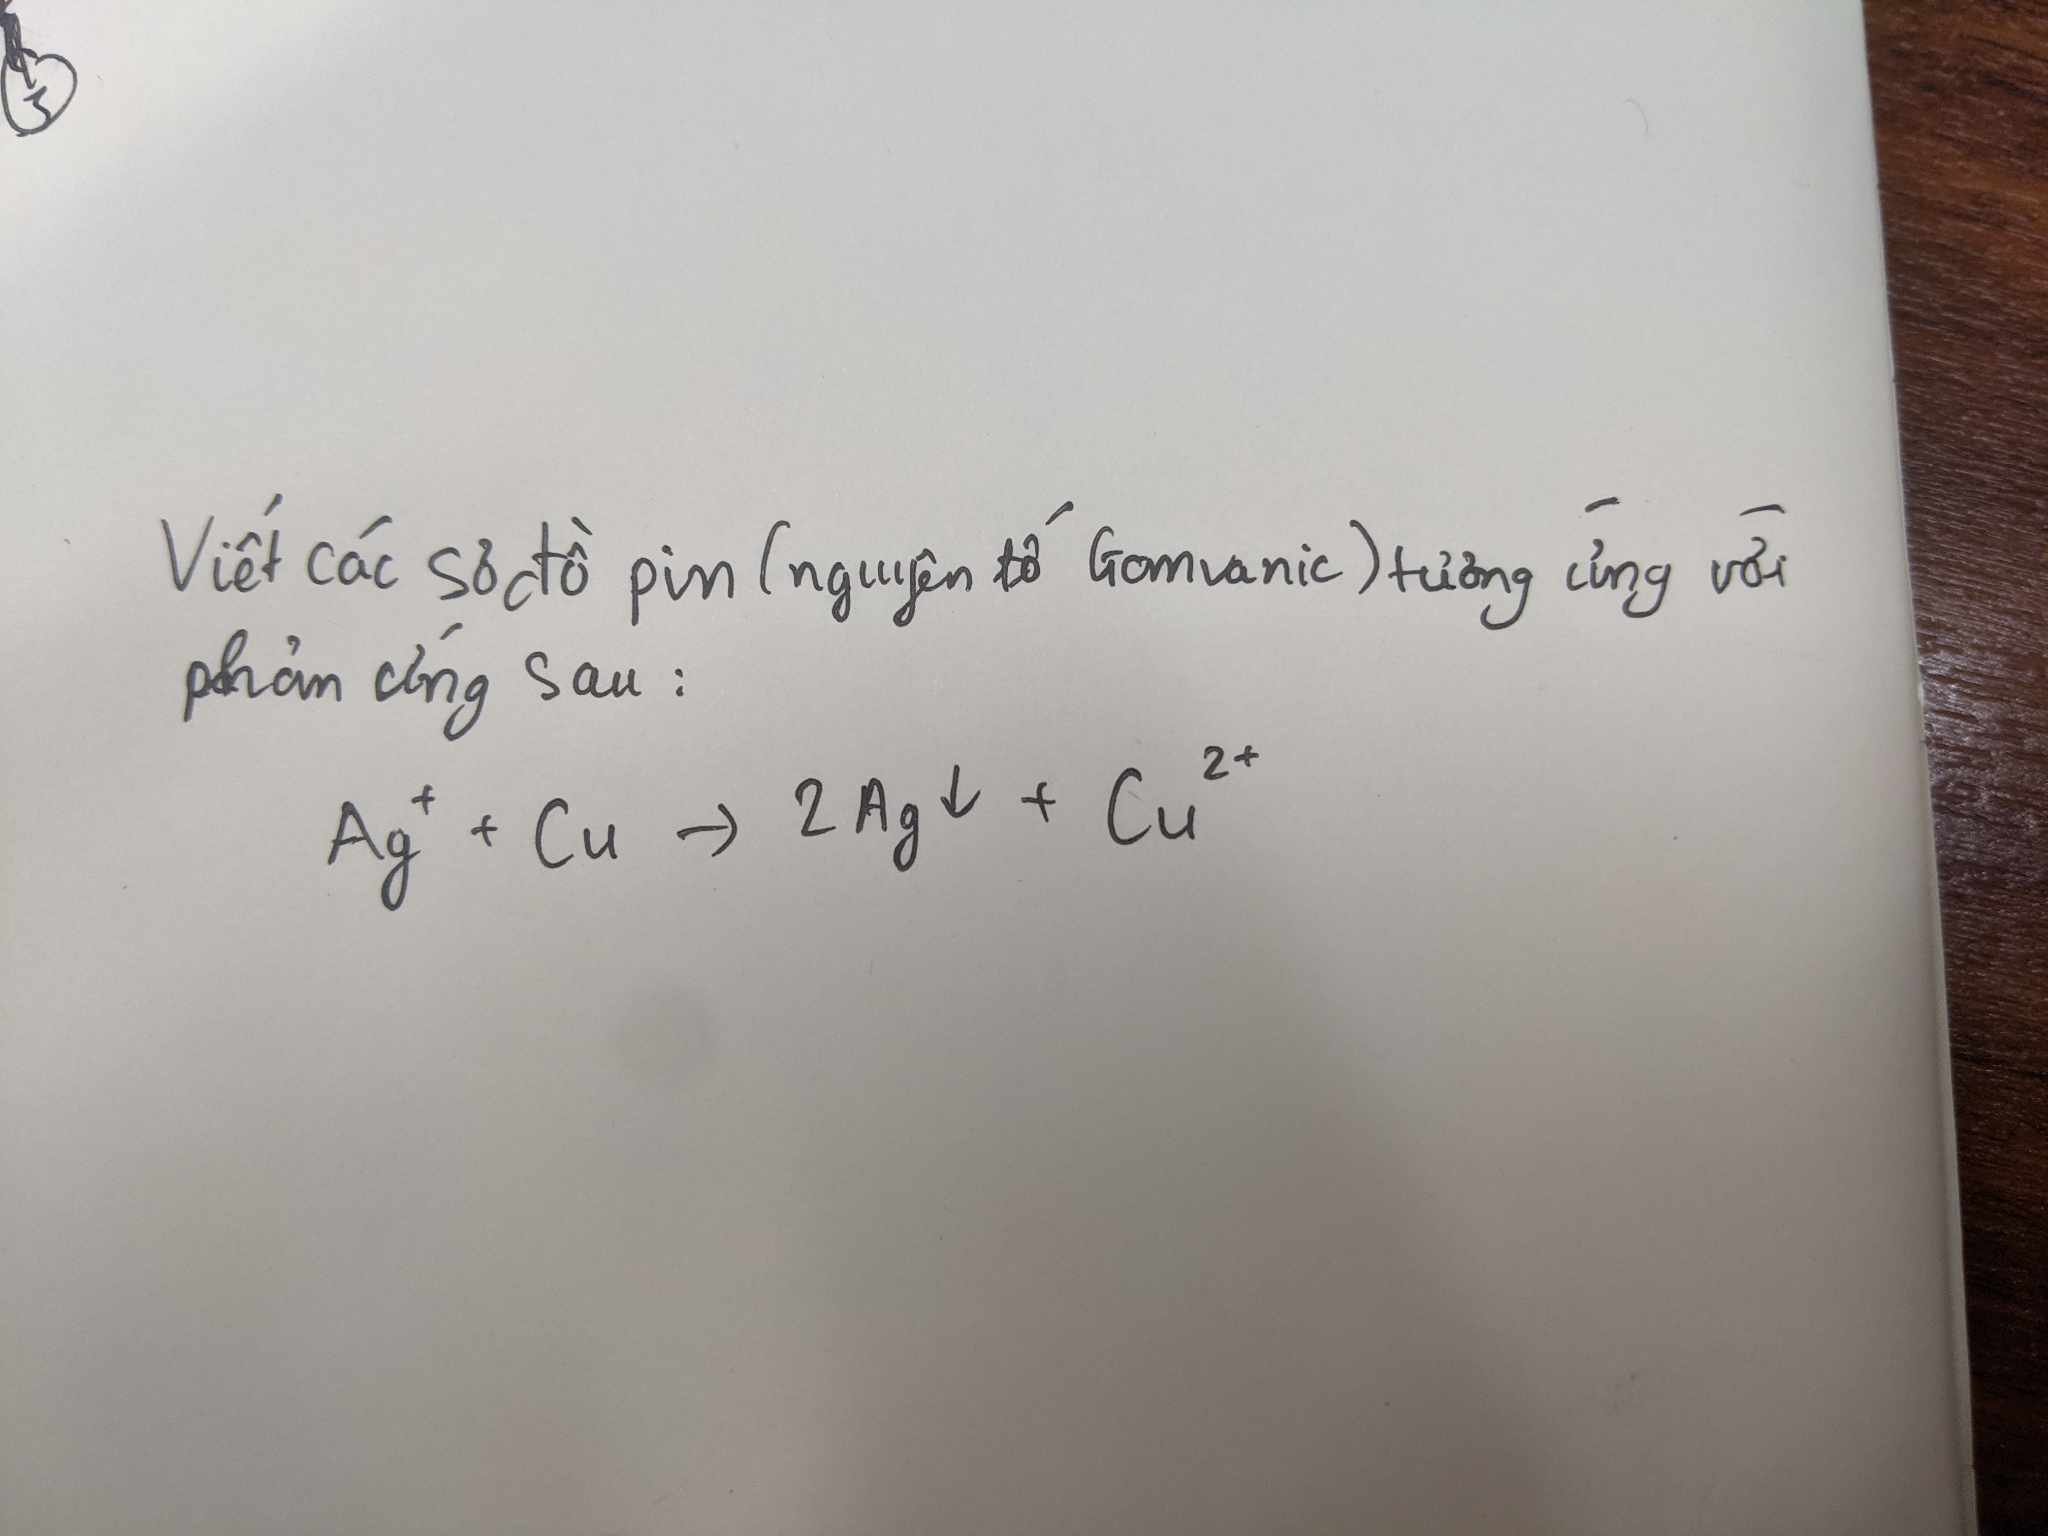 Viết các sơ đồ pin (nguyên tố Gomvanic) tương ứng với
phản ứng sau:
Ag⁺ + Cu → 2Ag↓ + Cu²⁺